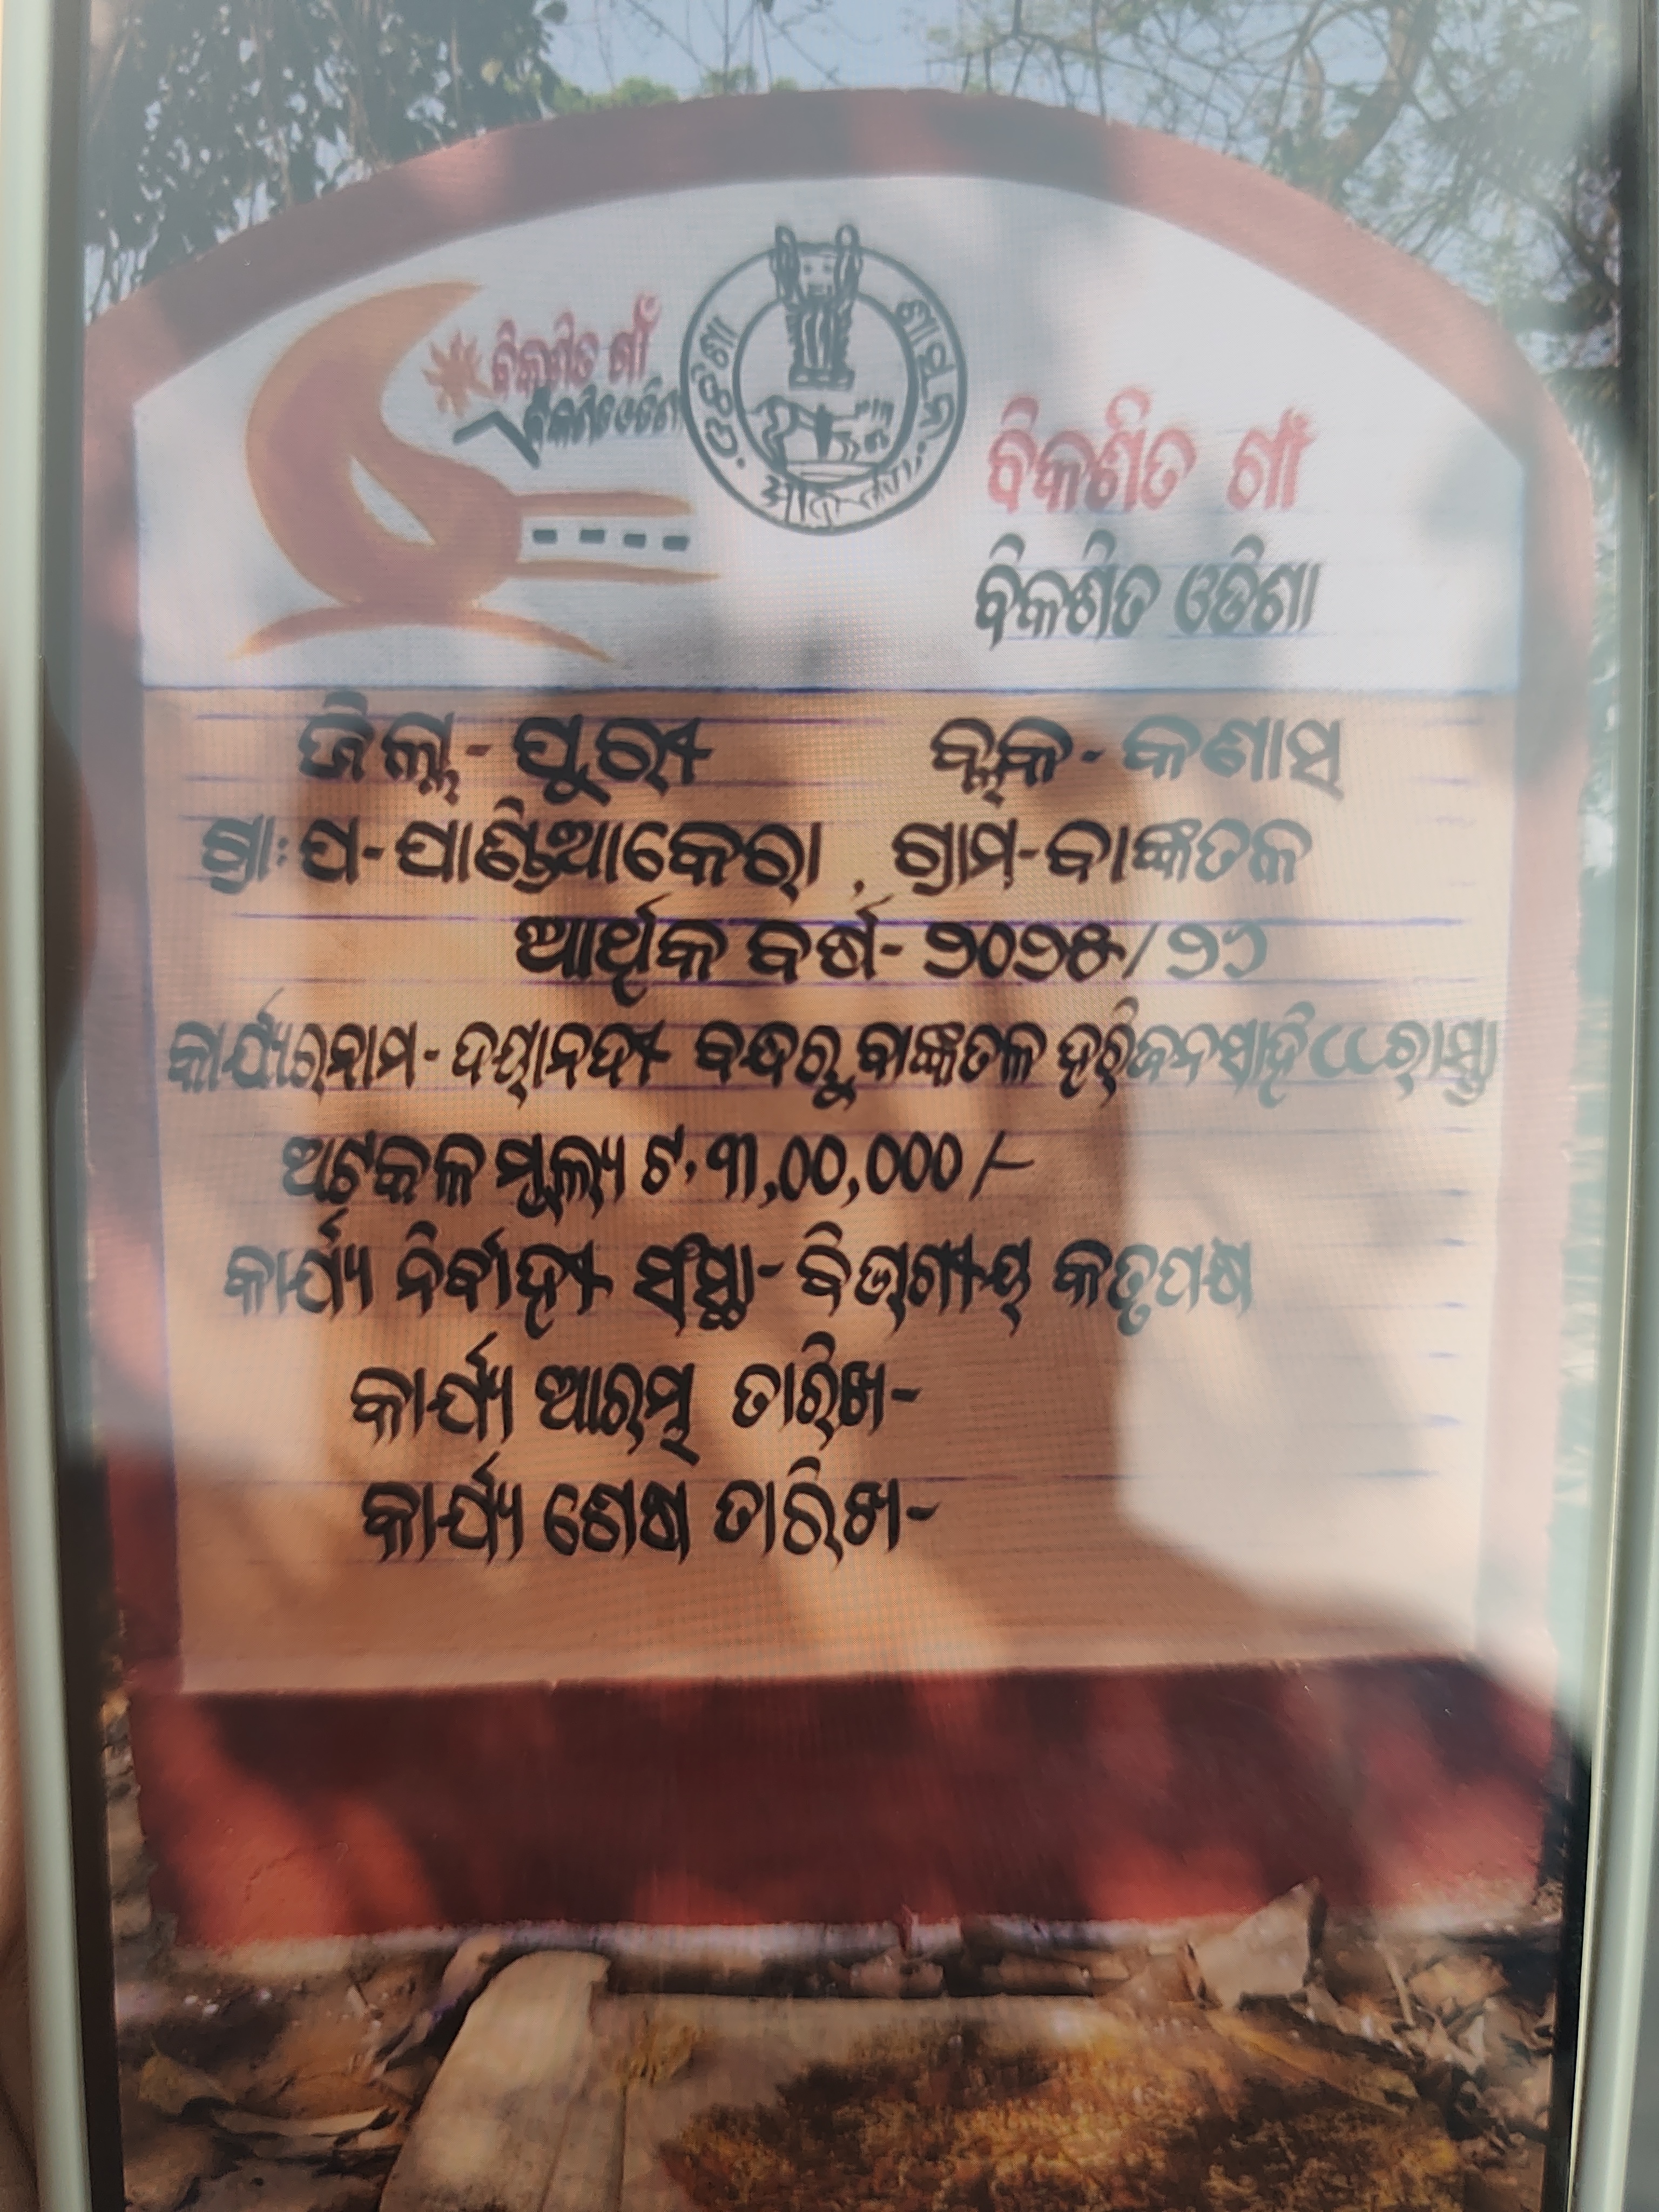 ବିକଶିତ ଗାଁ
ବିକଶିତ ଓଡିଶା
ଓଡିଶା ଶାସନ
ବିକଶିତ ଗାଁ
ବିକଶିତ ଓଡିଶା
ଜିଲ୍ଲା - ପୁରୀ ବ୍ଲକ - କଣାସ
ଗ୍ରା: ପ - ପାଣ୍ଡିଆକେରା , ଗ୍ରାମ - ବାଙ୍କତଳ
ଆର୍ଥିକ ବର୍ଷ - ୨୦୨୫/୨୬
କାର୍ଯ୍ୟର ନାମ - ଦୟାନଦୀ ବନ୍ଧରୁ ବାଙ୍କତଳ ହରିଜନସାହି CC ରାସ୍ତା
ଅଟକଳ ମୂଲ୍ୟ ଟ. ୩,୦୦,୦୦୦/-
କାର୍ଯ୍ୟ ନିର୍ବାହୀ ସଂସ୍ଥା - ବିଭାଗୀୟ କତୃପକ୍ଷ
କାର୍ଯ୍ୟ ଆରମ୍ଭ ତାରିଖ -
କାର୍ଯ୍ୟ ଶେଷ ତାରିଖ -